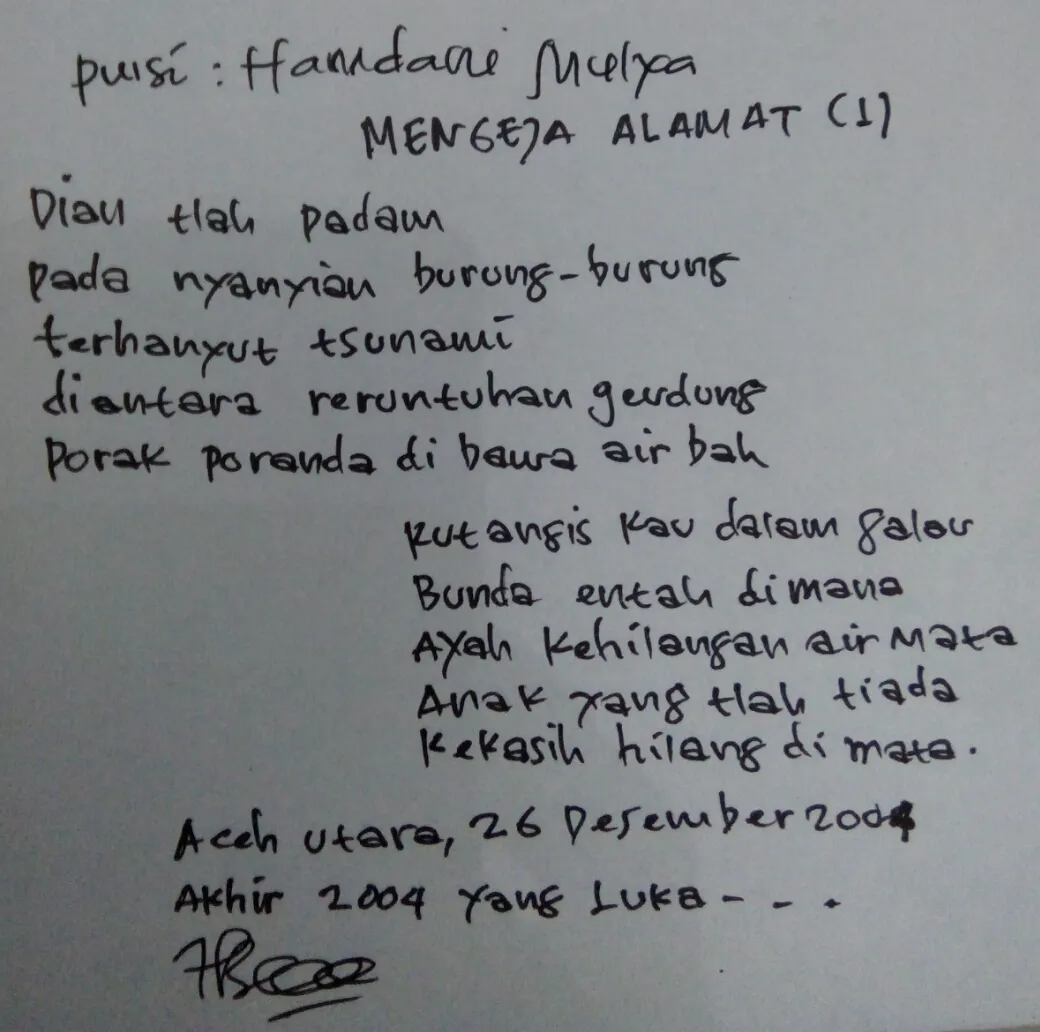 puisi : Hamdani Mulya
MENGEJA ALAMAT (1)
Dian tlah padam
pada nyanyian burung-burung
terhanyut tsunami
diantara reruntuhan gedung
porak poranda di bawa air bah
kutangis kau dalam galau
Bunda entah dimana
Ayah kehilangan air mata
Anak yang tlah tiada
kekasih hilang di mata.
Aceh utara, 26 Desember 2004
Akhir 2004 yang Luka - - .